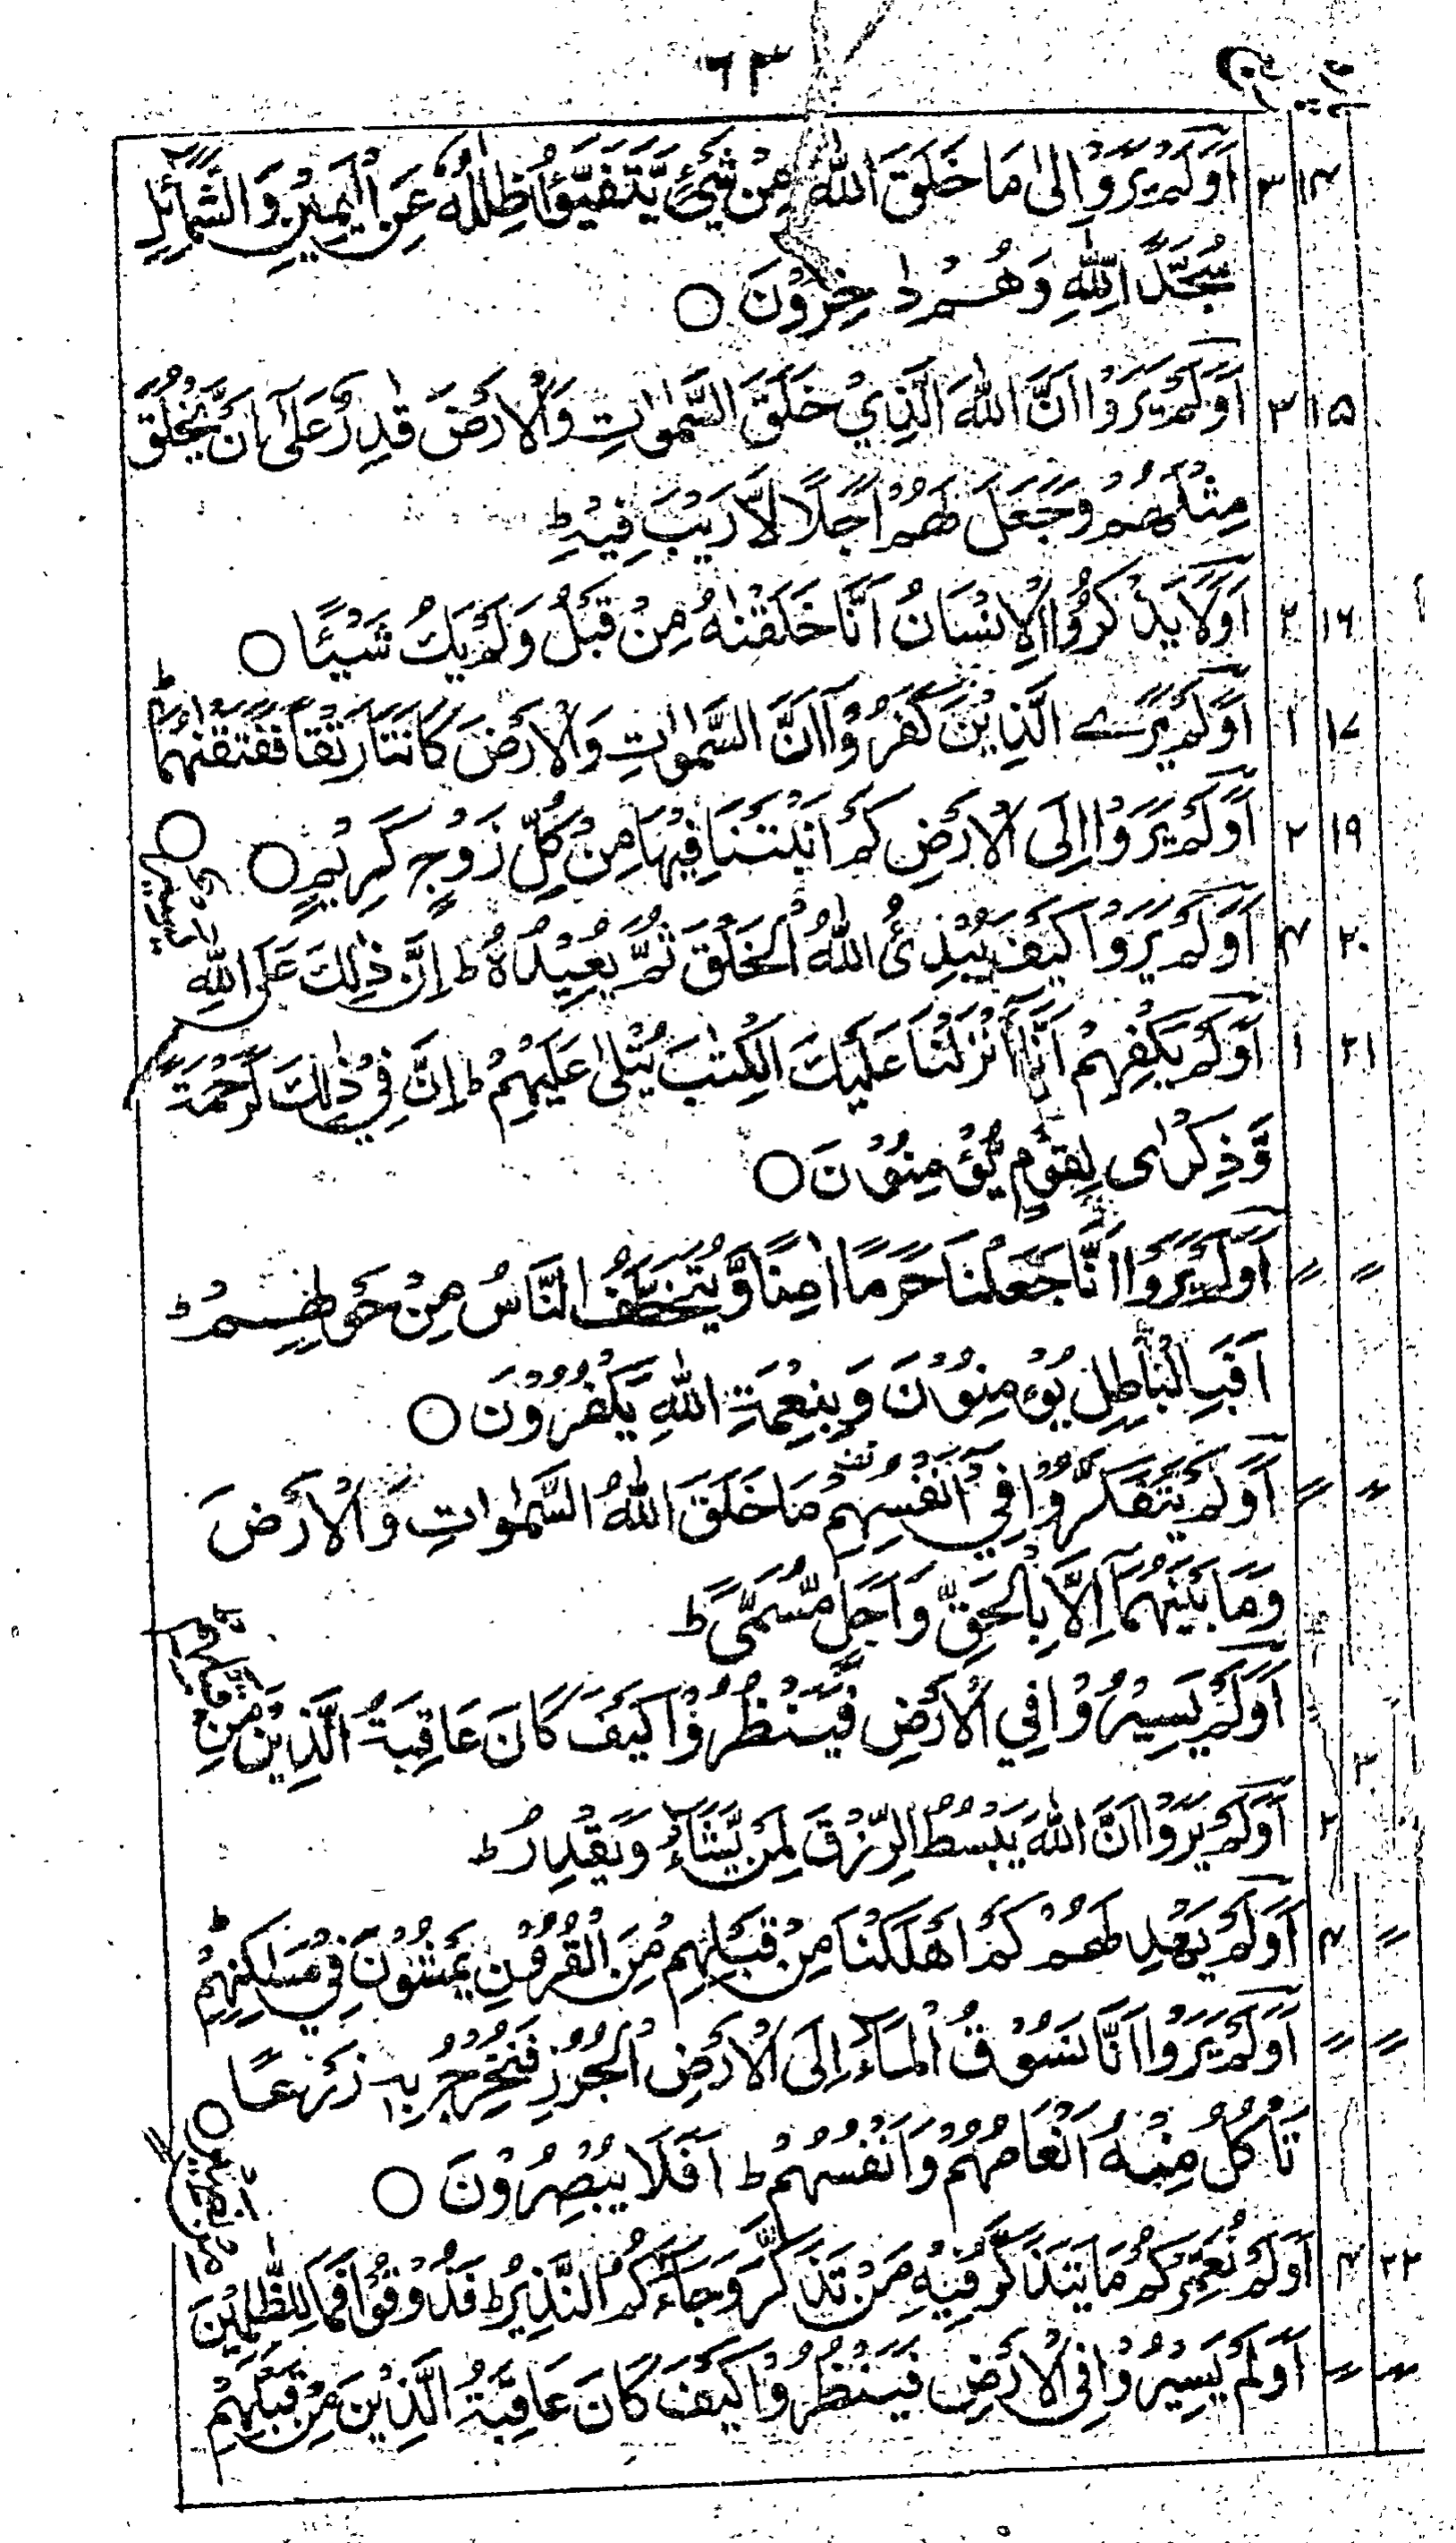 ٦٣
١٤ ٣ اَوَلَمْ يَرَوْا اِلٰى مَا خَلَقَ اللّٰهُ مِنْ شَيْءٍ يَّتَفَيَّؤُا ظِلٰلُهٗ عَنِ الْيَمِيْنِ وَالشَّمَآئِلِ
سُجَّدًا لِّلّٰهِ وَهُمْ دٰخِرُوْنَ ○
١٥ ٣ اَوَلَمْ يَرَوْا اَنَّ اللّٰهَ الَّذِيْ خَلَقَ السَّمٰوٰتِ وَالْاَرْضَ قَادِرٌ عَلٰٓى اَنْ يَّخْلُقَ
مِثْلَهُمْ وَجَعَلَ لَهُمْ اَجَلًا لَّا رَيْبَ فِيْهِ ط
١٦ ٢ اَوَلَا يَذْكُرُ الْاِنْسَانُ اَنَّا خَلَقْنٰهُ مِنْ قَبْلُ وَلَمْ يَكُ شَيْئًا ○
١٧ ١ اَوَلَمْ يَرَ الَّذِيْنَ كَفَرُوْٓا اَنَّ السَّمٰوٰتِ وَالْاَرْضَ كَانَتَا رَتْقًا فَفَتَقْنٰهُمَا ط
١٩ ٢ اَوَلَمْ يَرَوْا اِلَى الْاَرْضِ كَمْ اَنْۢبَتْنَا فِيْهَا مِنْ كُلِّ زَوْجٍ كَرِيْمٍ ○
٢٠ ٤ اَوَلَمْ يَرَوْا كَيْفَ يُبْدِئُ اللّٰهُ الْخَلْقَ ثُمَّ يُعِيْدُهٗ ط اِنَّ ذٰلِكَ عَلَى اللّٰهِ يَسِيْرٌ ○
٢١ ١ اَوَلَمْ يَكْفِهِمْ اَنَّآ اَنْزَلْنَا عَلَيْكَ الْكِتٰبَ يُتْلٰى عَلَيْهِمْ ط اِنَّ فِيْ ذٰلِكَ لَرَحْمَةً
وَّذِكْرٰى لِقَوْمٍ يُّؤْمِنُوْنَ ○
〃 〃 اَوَلَمْ يَرَوْا اَنَّا جَعَلْنَا حَرَمًا اٰمِنًا وَّيُتَخَطَّفُ النَّاسُ مِنْ حَوْلِهِمْ ط
اَفَبِالْبَاطِلِ يُؤْمِنُوْنَ وَبِنِعْمَةِ اللّٰهِ يَكْفُرُوْنَ ○
〃 〃 اَوَلَمْ يَتَفَكَّرُوْا فِيْٓ اَنْفُسِهِمْ مَا خَلَقَ اللّٰهُ السَّمٰوٰتِ وَالْاَرْضَ
وَمَا بَيْنَهُمَآ اِلَّا بِالْحَقِّ وَاَجَلٍ مُّسَمًّى ط
اَوَلَمْ يَسِيْرُوْا فِي الْاَرْضِ فَيَنْظُرُوْا كَيْفَ كَانَ عَاقِبَةُ الَّذِيْنَ مِنْ قَبْلِهِمْ ط
٢ اَوَلَمْ يَرَوْا اَنَّ اللّٰهَ يَبْسُطُ الرِّزْقَ لِمَنْ يَّشَآءُ وَيَقْدِرُ ط
〃 ٤ اَوَلَمْ يَهْدِ لَهُمْ كَمْ اَهْلَكْنَا مِنْ قَبْلِهِمْ مِّنَ الْقُرُوْنِ يَمْشُوْنَ فِيْ مَسٰكِنِهِمْ ط
〃 〃 اَوَلَمْ يَرَوْا اَنَّا نَسُوْقُ الْمَآءَ اِلَى الْاَرْضِ الْجُرُزِ فَنُخْرِجُ بِهٖ زَرْعًا
تَاْكُلُ مِنْهُ اَنْعَامُهُمْ وَاَنْفُسُهُمْ ط اَفَلَا يُبْصِرُوْنَ ○
٢٢ ٤ اَوَلَمْ نُعَمِّرْكُمْ مَّا يَتَذَكَّرُ فِيْهِ مَنْ تَذَكَّرَ وَجَآءَكُمُ النَّذِيْرُ ط فَذُوْقُوْا فَمَا لِلظّٰلِمِيْنَ مِنْ نَّصِيْرٍ ○
〃 〃 اَوَلَمْ يَسِيْرُوْا فِي الْاَرْضِ فَيَنْظُرُوْا كَيْفَ كَانَ عَاقِبَةُ الَّذِيْنَ مِنْ قَبْلِهِمْ